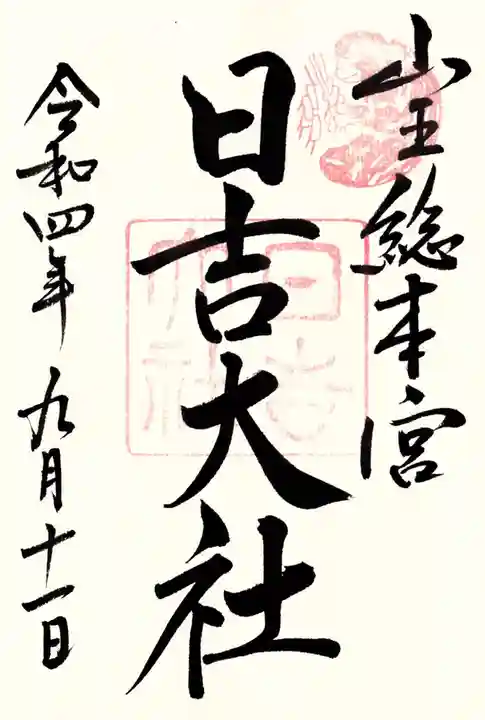 山王総本宮
日吉大社
令和四年 九月十一日
日吉大社